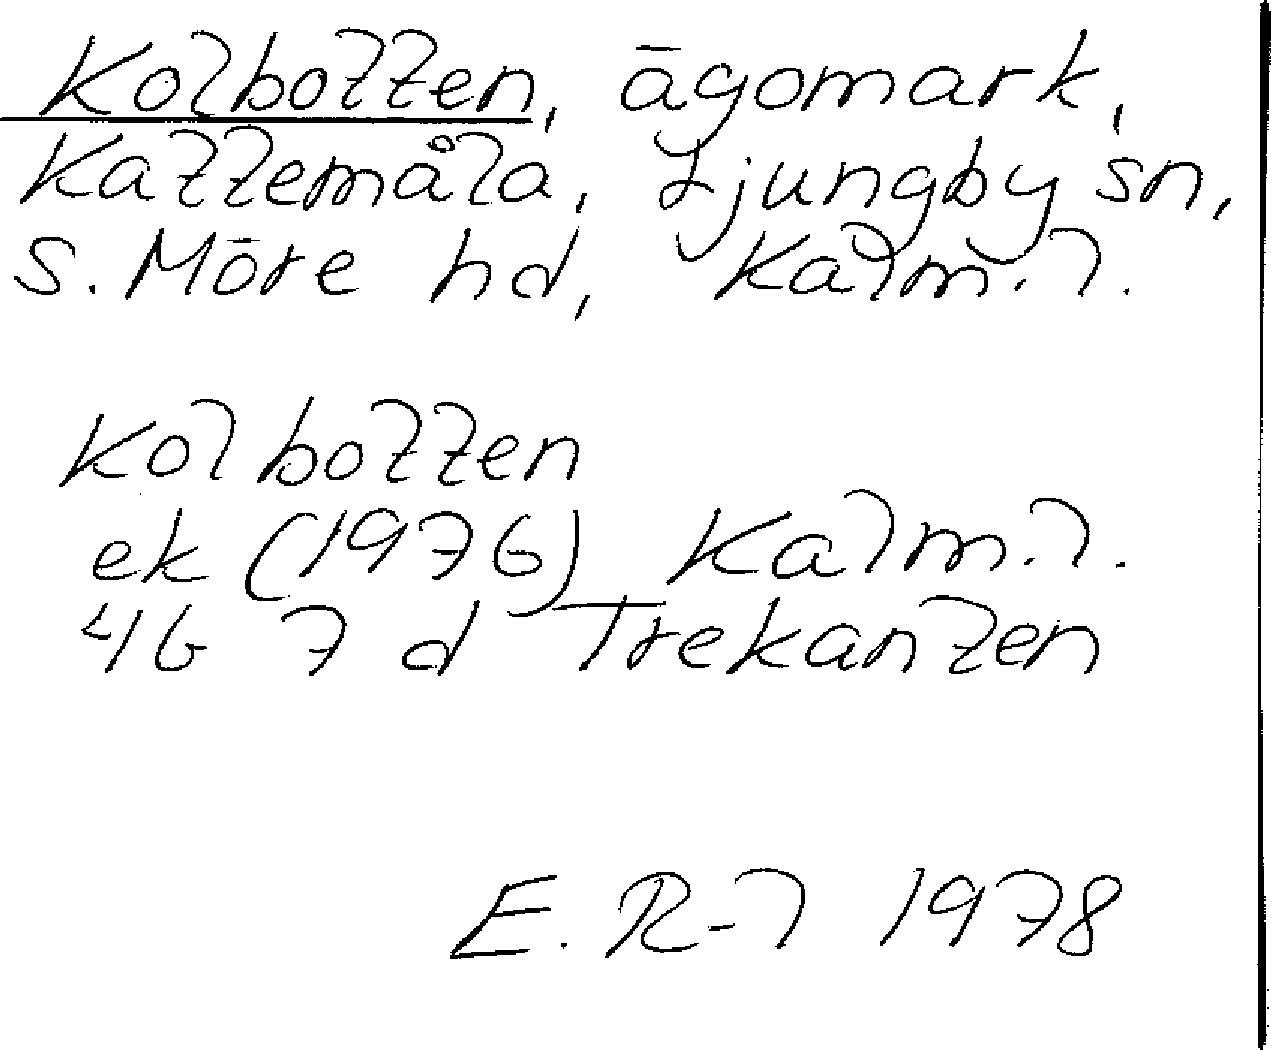 Kolbotten, ägomark,
Kattemåla, Ljungby sn,
S. Möre hd, Kalm. l.
Kolbotten
ek (1976) Kalm. l.
4G 7 d Trekanten
E. R-l 1978